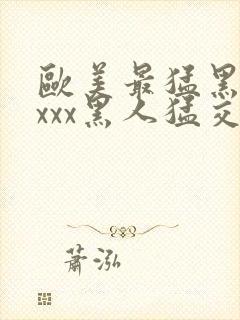 歐美最猛黑
xxx黑人猛交
蕭泓